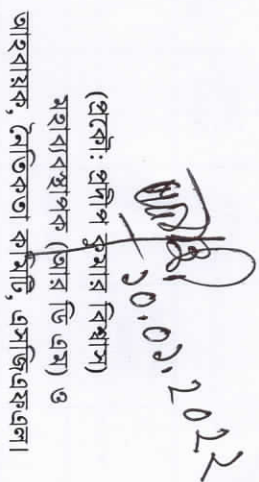 ১০.০১.২০২২
(প্রকৌ: প্রদিপ কুমার বিশ্বাস)
মহাব্যবস্থাপক (আর ডি এম) ও
আহবায়ক, নৈতিকতা কমিটি, এসজিএফএল।